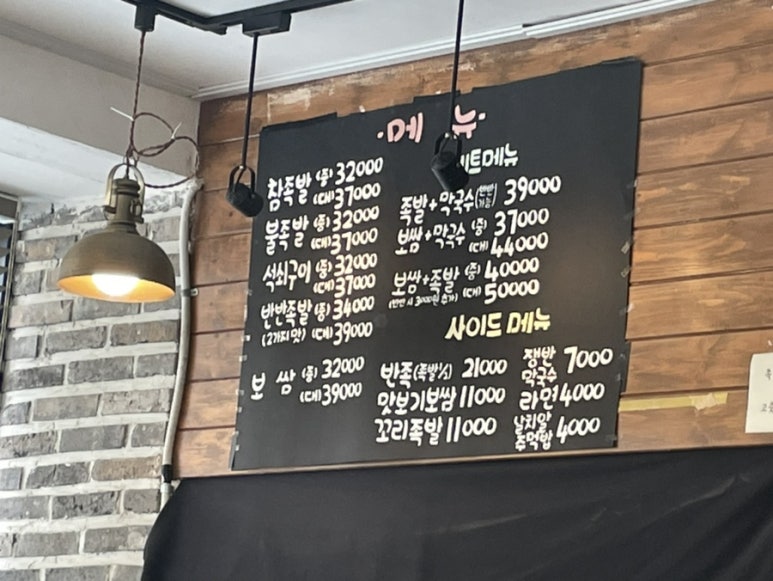 ·메뉴·
참족발 (중) 32000
(대) 37000
불족발 (중) 32000
(대) 37000
석쇠구이 (중) 32000
(대) 37000
반반족발 (중) 34000
(2가지 맛) (대) 39000
보 쌈 (중) 32000
(대) 39000
트메뉴
족발+막국수 (반반가능) 39000
보쌈+막국수 (중) 37000
(대) 44000
보쌈+족발 (중) 40000
(반반 시 3000원 추가) (대) 50000
사이드 메뉴
반족 (족발½) 21000
맛보기보쌈 11000
꼬리족발 11000
쟁반
막국수 7000
라면 4000
날치알
주먹밥 4000